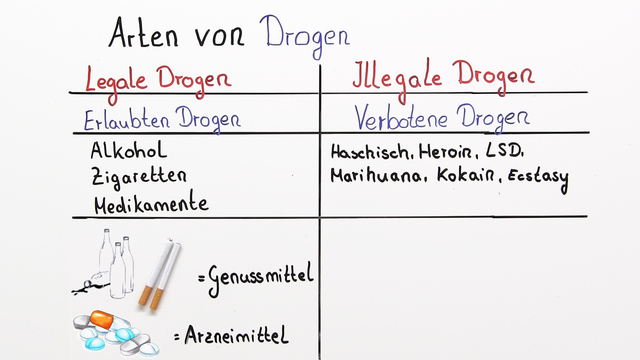 Arten von Drogen
Legale Drogen
Illegale Drogen
Erlaubten Drogen
Verbotene Drogen
Alkohol
Zigaretten
Medikamente
Haschisch, Heroin, LSD,
Marihuana, Kokain, Ecstasy
= Genussmittel
= Arzneimittel